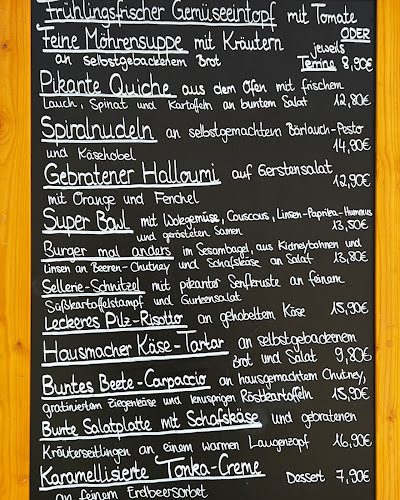 Frühlingsfrischer Gemüseeintopf mit Tomate
ODER
Feine Möhrensuppe mit Kräutern jeweils
an selbstgebackenem Brot Terrine 8,90€
Pikante Quiche aus dem Ofen mit frischem
Lauch, Spinat und Kartoffeln an buntem Salat 12,80€
Spiralnudeln an selbstgemachtem Bärlauch-Pesto
und Käsehobel 14,90€
Gebratener Halloumi auf Gerstensalat
mit Orange und Fenchel 12,90€
Super Bowl mit Wokgemüse, Couscous, Linsen-Paprika-Hummus
und gerösteten Samen 13,90€
Burger mal anders im Sesambagel, aus Kidneybohnen und
Linsen an Beeren-Chutney und Schafskäse an Salat 13,80€
Sellerie-Schnitzel mit pikanter Senfkruste an feinem
Süßkartoffelstampf und Gurkensalat
Leckeres Pilz-Risotto an gehobeltem Käse 15,90€
Hausmacher Käse-Tartar an selbstgebackenem
Brot und Salat 9,80€
Buntes Beete-Carpaccio an hausgemachtem Chutney,
gratiniertem Ziegenkäse und knusprigen Röstkartoffeln 15,90€
Bunte Salatplatte mit Schafskäse und gebratenen
Kräuterseitlingen an einem warmen Laugenzopf 16,90€
Karamellisierte Tonka-Creme Dessert 7,90€
an feinem Erdbeersorbet